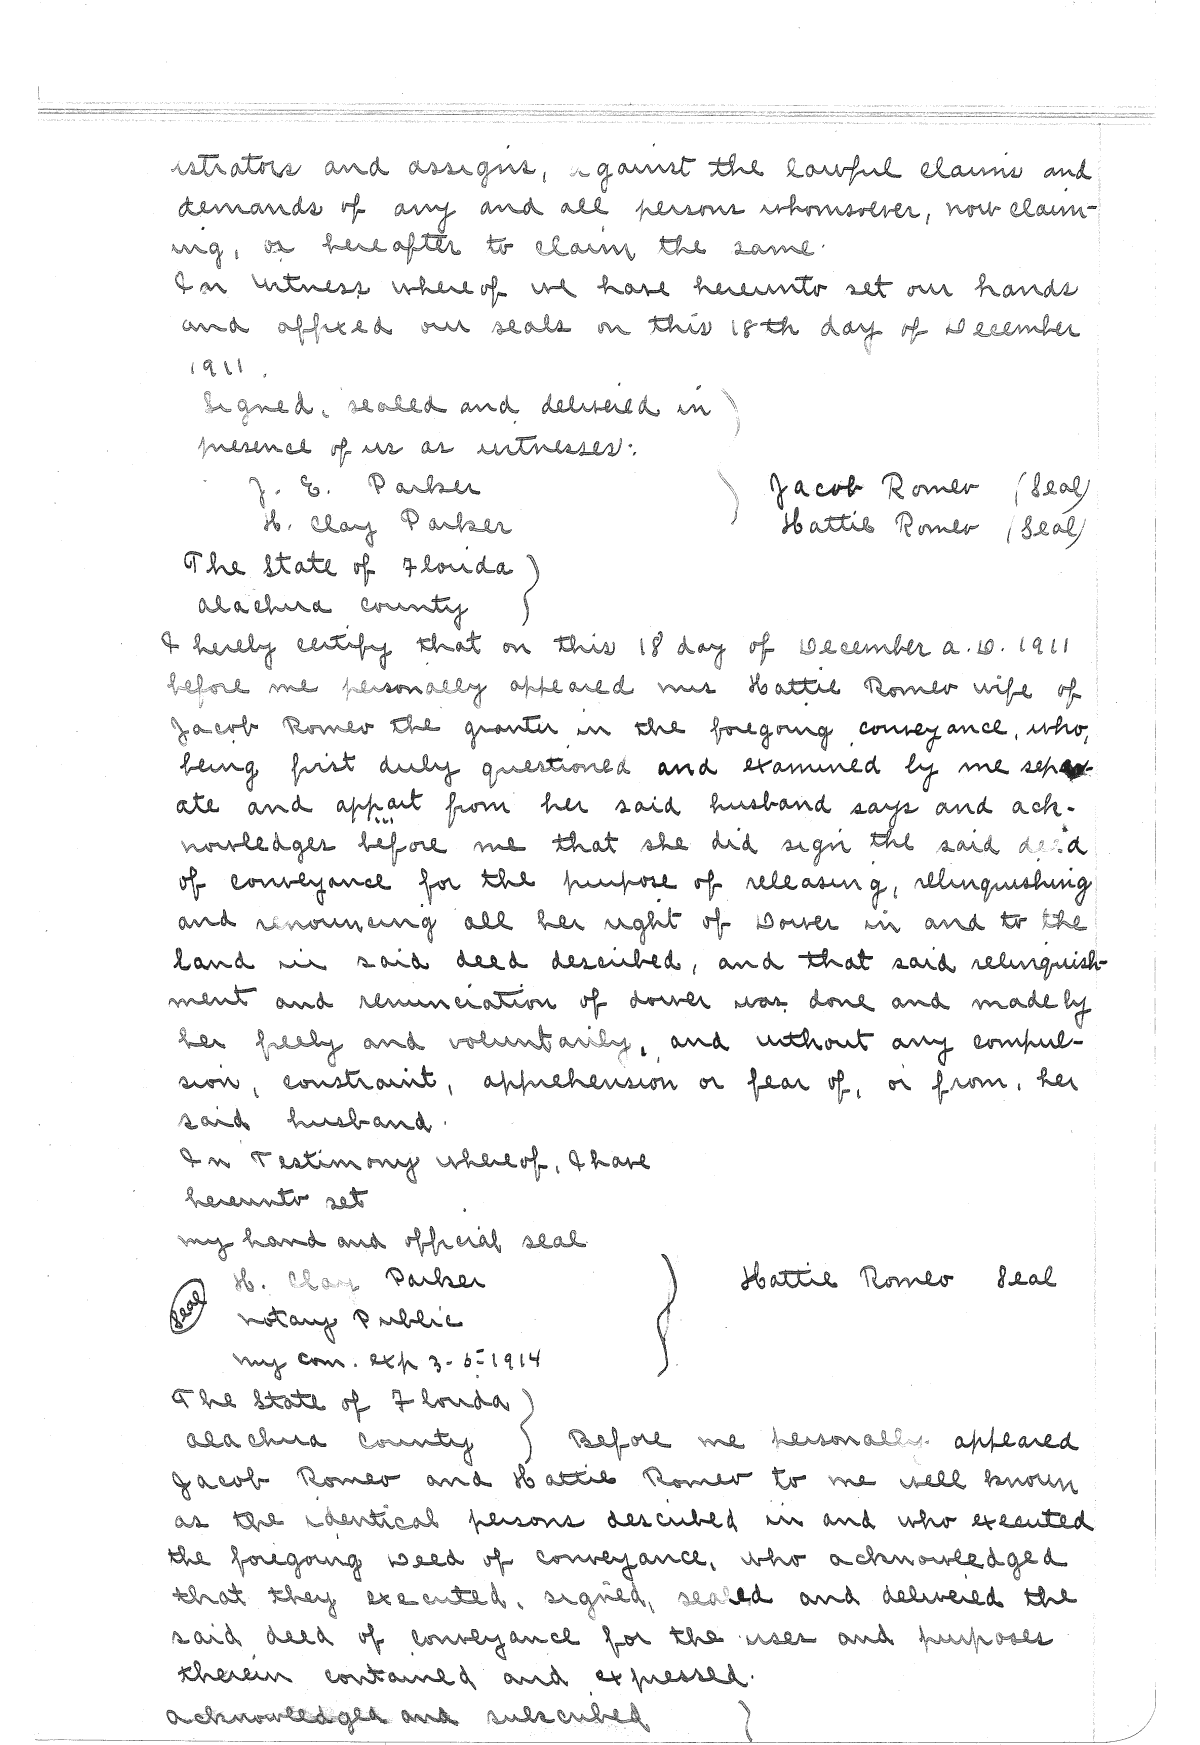 istrators and assigns, against the lawful claims and
demands of any and all persons whomsoever, now claim-
ing, or hereafter to claim, the same.
In Witness whereof we have hereunto set our hands
and affixed our seals on this 18th day of December
1911.
Signed, sealed and delivered in
presence of us as witnesses:
J. E. Parker
H. Clay Parker
Jacob Romeo (Seal)
Hattie Romeo (Seal)
The State of Florida
Alachua County
I hereby certify that on this 18 day of December A.D. 1911
before me personally appeared Mrs Hattie Romeo wife of
Jacob Romeo the grantor in the foregoing conveyance, who,
being first duly questioned and examined by me separ-
ate and appart from her said husband says and ack-
nowledges before me that she did sign the said deed
of conveyance for the purpose of releasing, relinquishing
and renouncing all her right of Dower in and to the
land in said deed described, and that said relinquish-
ment and renunciation of dower was done and made by
her freely and voluntarily, and without any compul-
sion, constraint, apprehension or fear of, or from, her
said husband.
In Testimony whereof, I have
hereunto set
my hand and official seal
H. Clay Parker
Seal
Notary Public
my com. exp 3-5-1914
Hattie Romeo Seal
The State of Florida
Alachua County
Before me personally appeared
Jacob Romeo and Hattie Romeo to me well known
as the identical persons described in and who executed
the foregoing Deed of conveyance, who acknowledged
that they executed, signed, sealed and delivered the
said deed of conveyance for the uses and purposes
therein contained and expressed.
acknowledged and subscribed